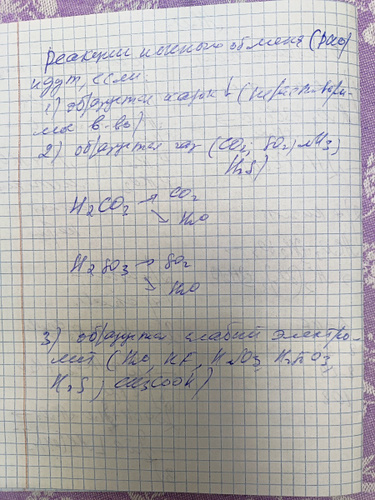 Реакции ионного обмена (РИО)
идут, если:
1) образуется осадок ↓ (нераствори-
мое в-во)
2) образуется газ (CO2, SO2, NH3,
H2S)
H2CO3 → CO2
↘ H2O
H2SO3 → SO2
↘ H2O
3) образуется слабый электро-
лит (H2O, HF, H2SO3, H2CO3,
H2S, CH3COOH)